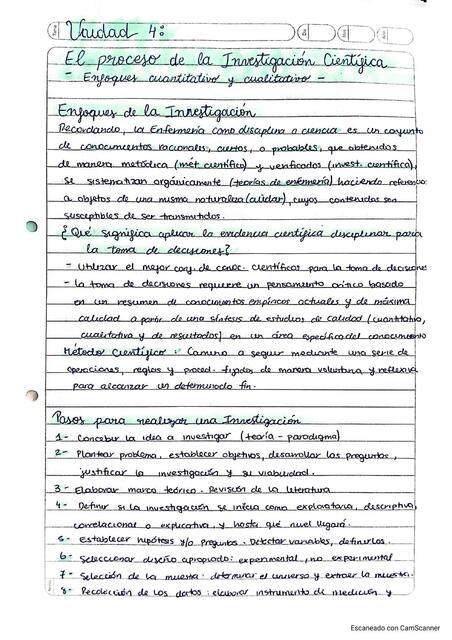 Unidad 4:
El proceso de la Investigación Científica
- Enfoques cuantitativo y cualitativo -
Enfoques de la Investigación
Recordando, la Enfermería como disciplina o ciencia es un conjunto
de conocimientos racionales, ciertos, o probables, que obtenidos
de manera metódica (mét. científico) y verificados (invest. científica),
se sistematizan orgánicamente (teorías de enfermería) haciendo referencia
a objetos de una misma naturaleza (cuidar), cuyos contenidos son
susceptibles de ser transmitidos.
¿Qué significa aplicar la evidencia científica disciplinar para
la toma de decisiones?
- Utilizar el mejor conj. de conoc. científicos para la toma de decisiones
- la toma de decisiones requiere un pensamiento crítico basado
en un resumen de conocimientos empíricos actuales y de máxima
calidad a partir de una síntesis de estudios de calidad (cuantitativa,
cualitativa y de resultados) en un área específica del conocimiento
Método Científico: Camino a seguir mediante una serie de
operaciones, reglas y proced. fijados de manera voluntaria y reflexiva
para alcanzar un determinado fin.
Pasos para realizar una Investigación
1- Concebir la idea a investigar (teoría - paradigma)
2- Plantear problema, establecer objetivos, desarrollar las preguntas,
justificar la investigación y su viabilidad.
3- Elaborar marco teórico. Revisión de la literatura
4- Definir si la investigación se inicia como exploratoria, descriptiva,
correlacional o explicativa, y hasta qué nivel llegará.
5- Establecer hipótesis y/o preguntas. Detectar variables, definirlas.
6- Seleccionar diseño apropiado: experimental, no experimental
7- Selección de la muestra: determinar el universo y extraer la muestra.
8- Recolección de los datos: elaborar instrumento de medición y
Escaneado con CamScanner